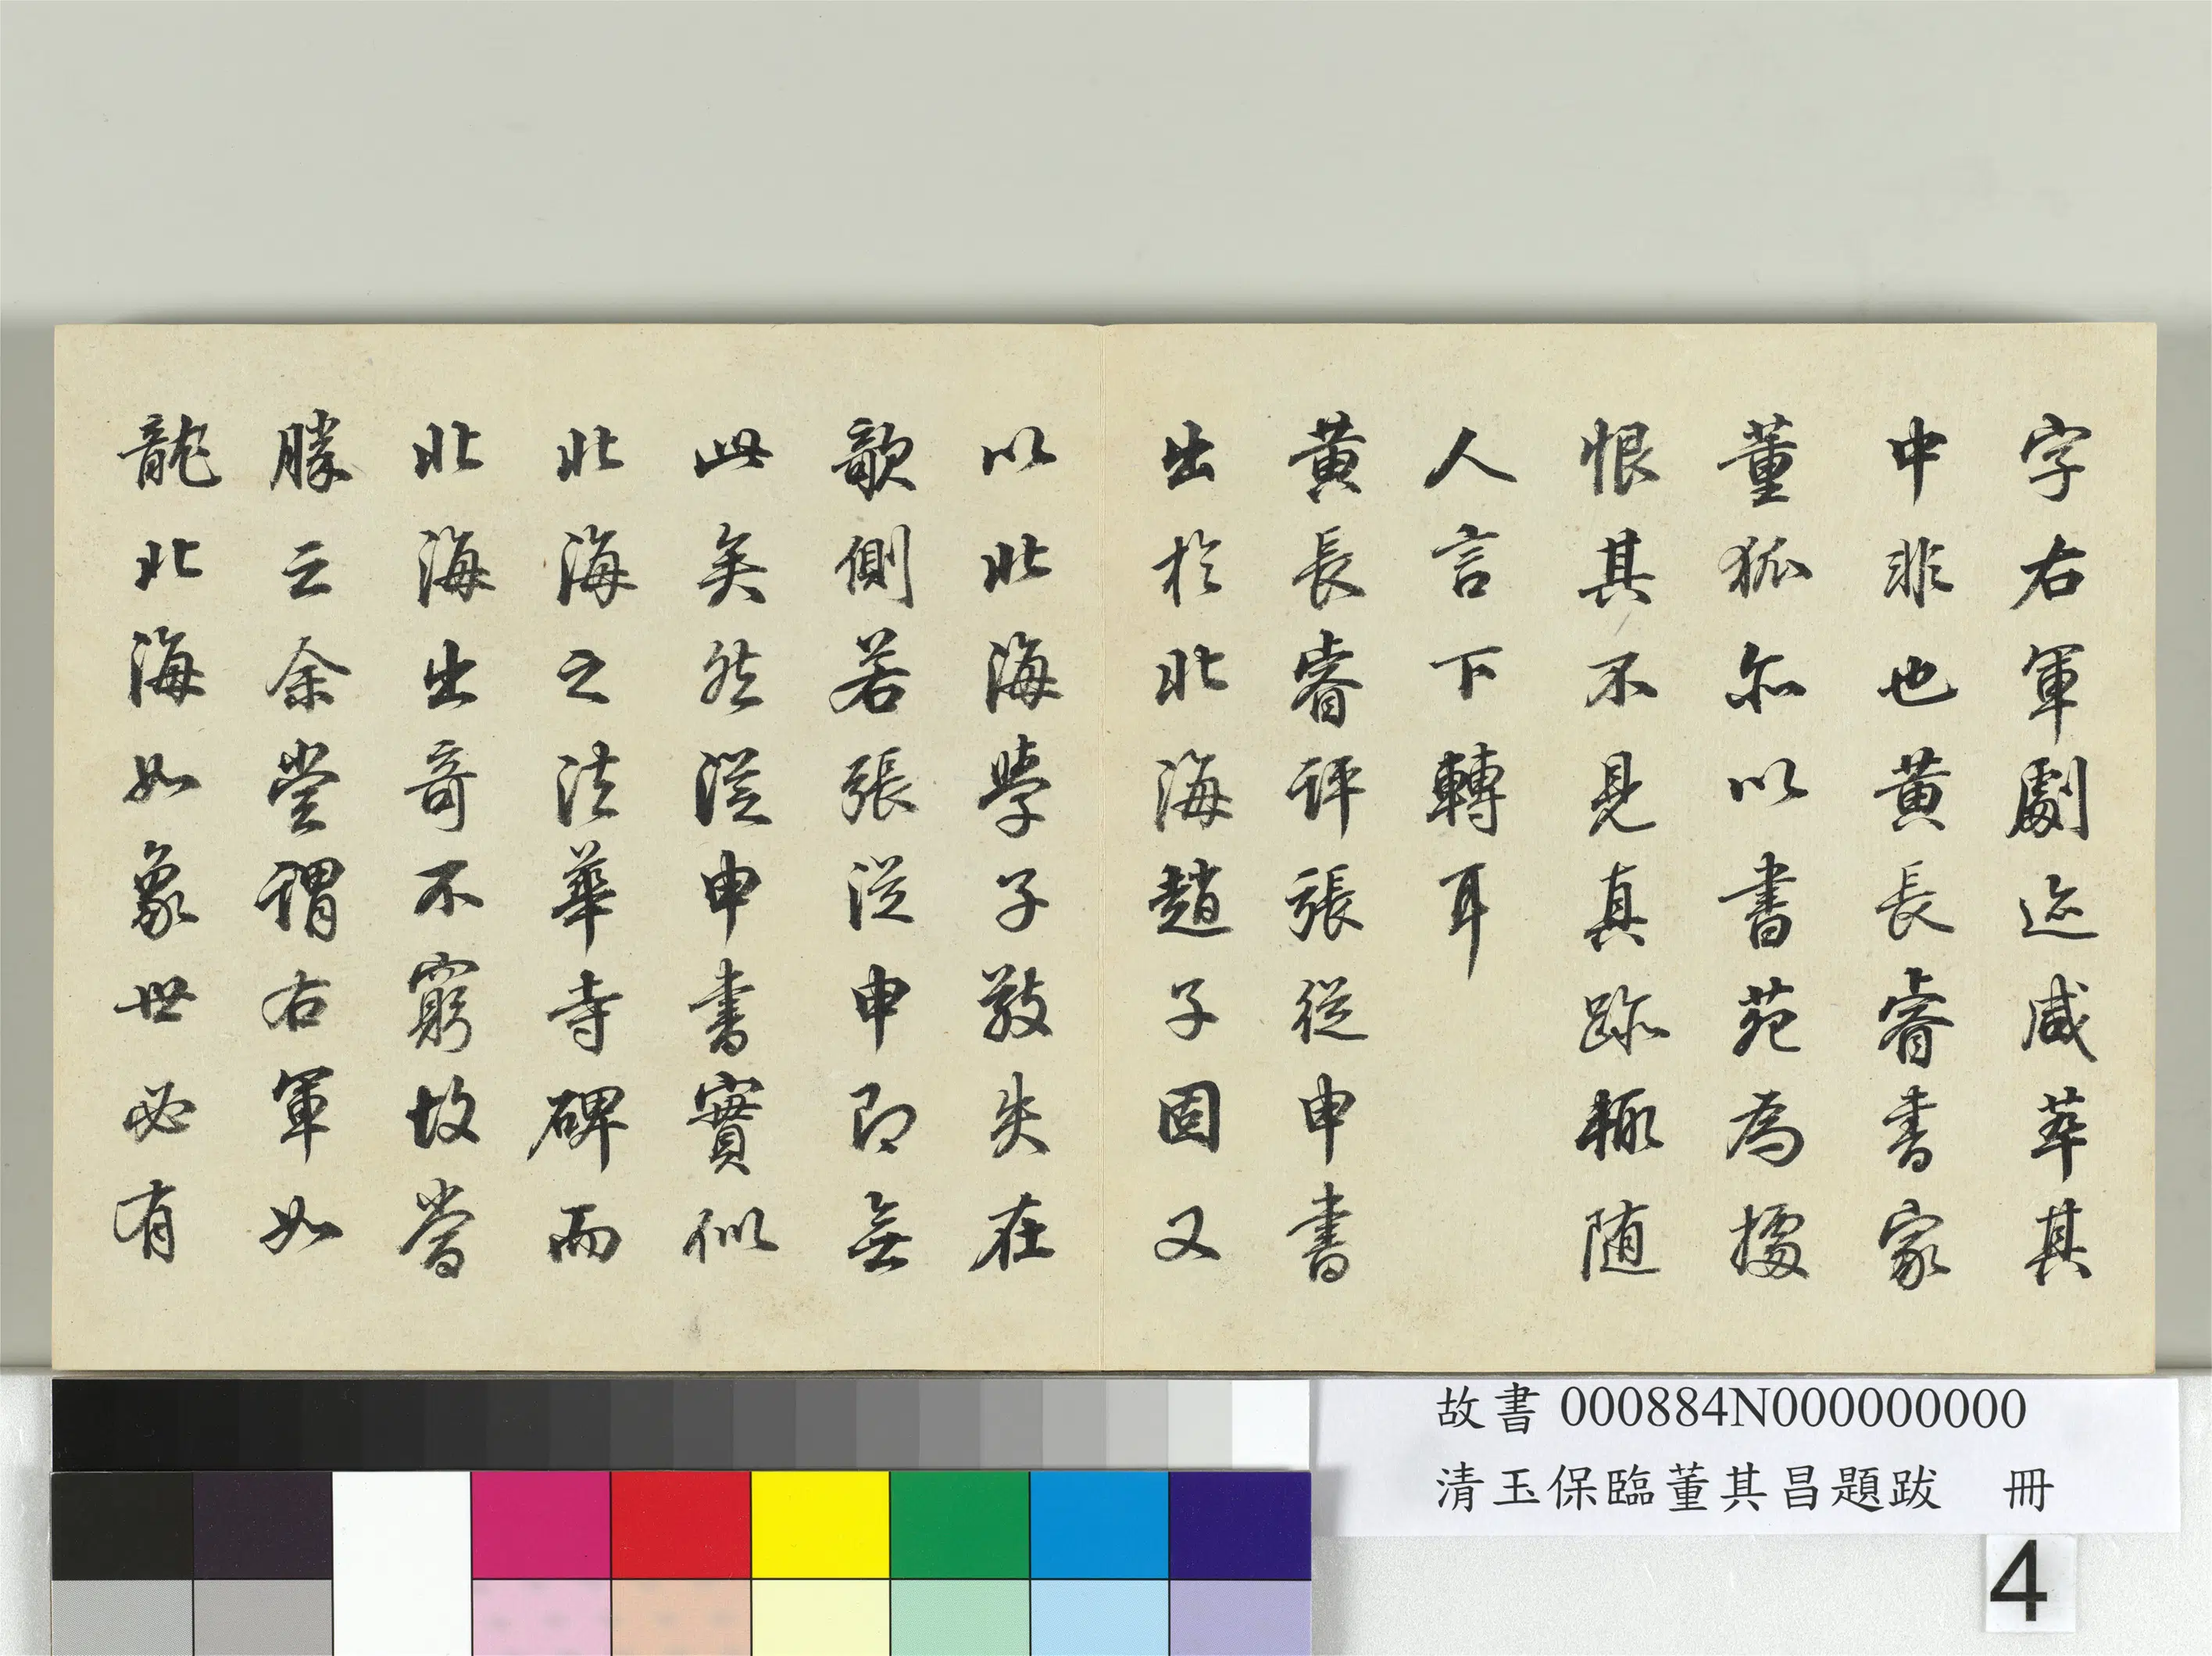 字右軍劇迹咸萃其
中非也黃長睿書家
董狐尔以書苑為據
恨其不見真跡輒随
人言下轉耳
黃長睿評張從申書
出於北海趙子固又
以北海學子敬失在
欹側若張從申即無
此矣然從申書實似
北海之法華寺碑而
北海出奇不窮故當
勝云余嘗謂右軍如
龍北海如象世必有
故書 000884N000000000
清玉保臨董其昌題跋 冊
4